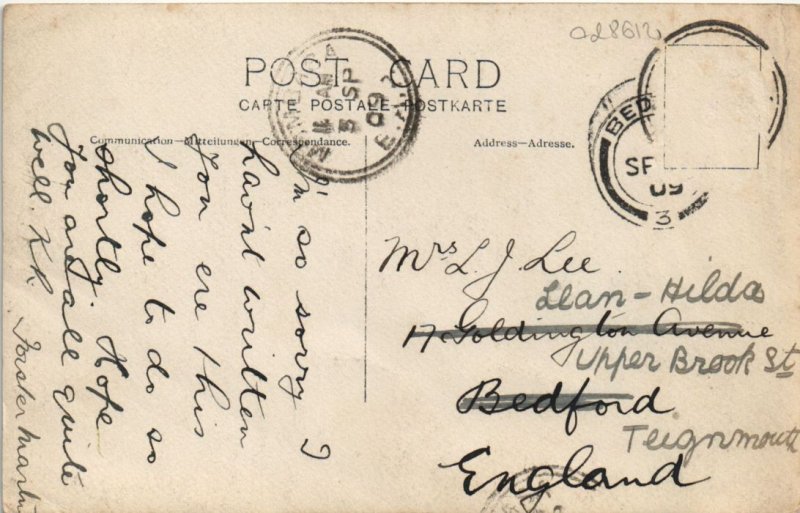 od8612
POST CARD
CARTE POSTALE-POSTKARTE
Communication-Mitteilungen-Correspondence.
Address-Adresse.
MOMBASA
11 AM
SP
09
BED
SE
09
3
I'm so sorry I
hav'nt written
you ere this
I hope to do so
shortly. Hope
you are all quite
well. K.R.
Forster Martin
Mrs L. J. Lee
Llan-Hilda
17 Goldington Avenue
Upper Brook St
Bedford
Teignmouth
England